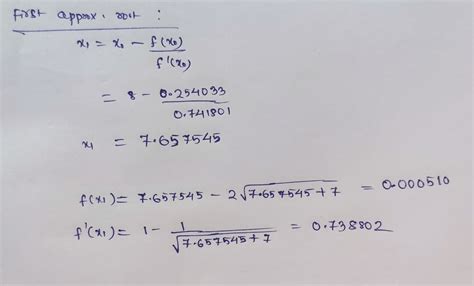 First approx. root :
x₁ = x₀ - f(x₀) / f'(x₀)
= 8 - 0.254033 / 0.741801
x₁ = 7.657545
f(x₁) = 7.657545 - 2√(7.657545+7) = 0.000510
f'(x₁) = 1 - 1 / √(7.657545+7) = 0.738802